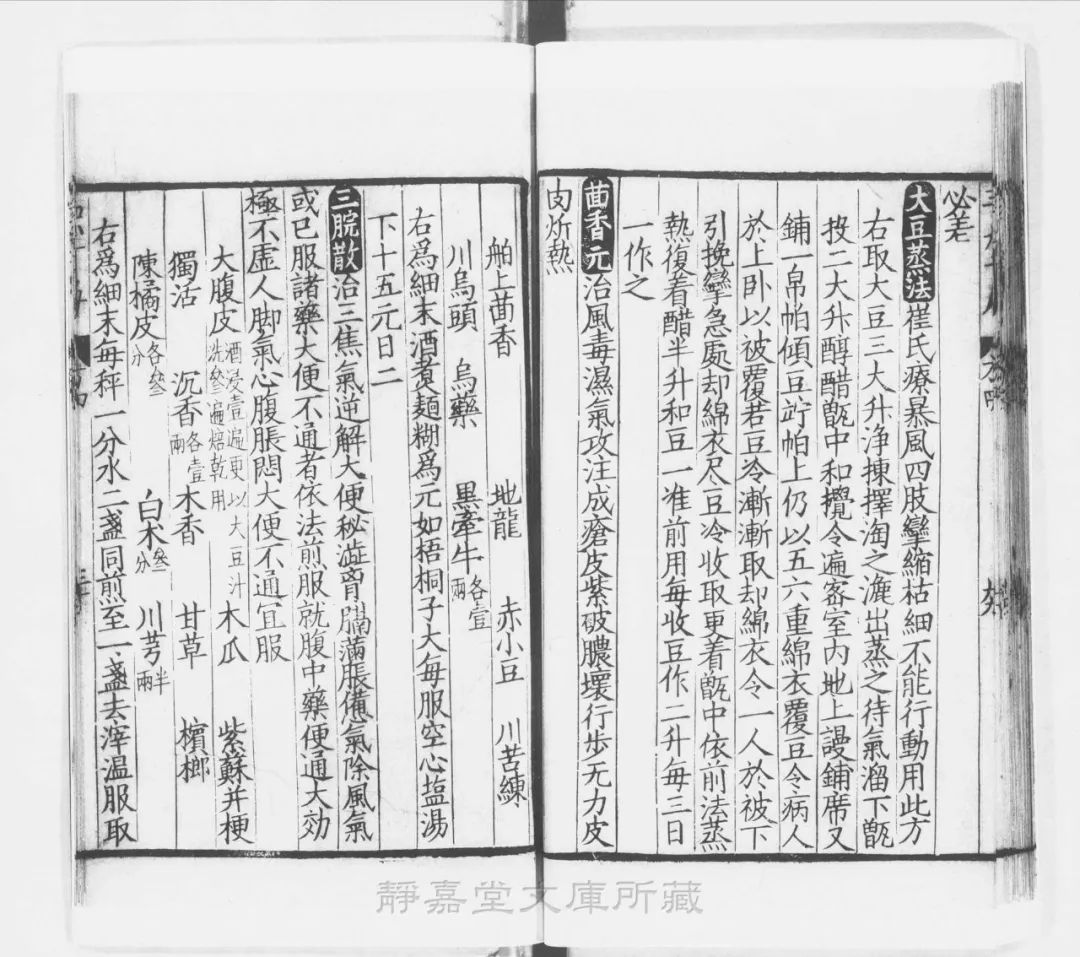 必差
大豆蒸法崔氏療暴風四肢攣縮枯細不能行動用此方
右取大豆三大升浄揀擇淘之漉出蒸之待氣溜下甑
投二大升醇醋甑中和攪令遍密室内地上謾鋪席又
鋪一帛帕傾豆竚帕上仍以五六重綿衣覆豆令病人
於上卧以被覆若豆冷漸漸取却綿衣令一人於被下
引挽攣急處却綿衣尽豆冷收取更着甑中依前法蒸
熱復着醋半升和豆一准前用每收豆作二升每三日
一作之
茴香元治風毒濕氣攻注成瘡皮紫破膿壞行步无力皮
肉焮熱
舶上茴香 地龍 赤小豆 川苦練
川烏頭 烏藥 黑牽牛各壹兩
右爲細末酒煑麺糊爲元如梧桐子大每服空心塩湯
下十五元日二
三脘散治三焦氣逆解大便秘澁胷膈滿脹憊氣除風氣
或已服諸藥大便不通者依法煎服就腹中藥便通大効
極不虚人脚氣心腹脹悶大便不通冝服
大腹皮酒浸壹遍更以大豆汁洗叄遍焙乾用 木瓜 紫蘇并梗
獨活 沉香各壹兩 木香 甘草 檳榔
陳橘皮各叄分 白术叄分 川芎半兩
右爲細末每秤一分水二盞同煎至一盞去滓温服取
靜嘉堂文庫所藏